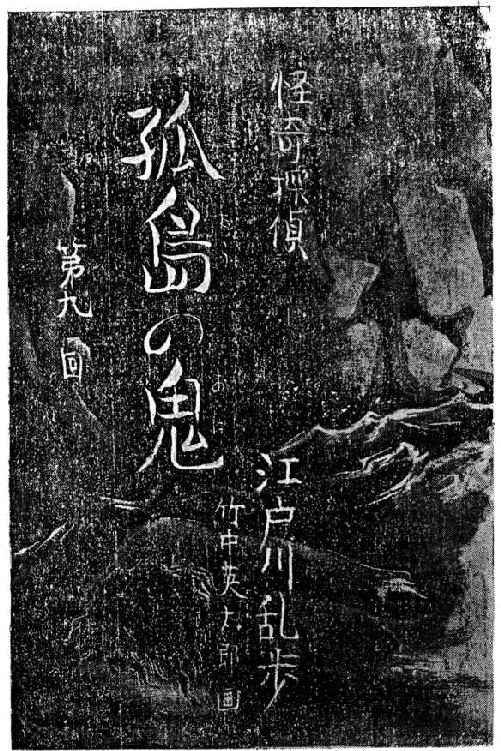 怪奇探偵
孤島の鬼
第九回
江戸川乱歩
竹中英太郎画